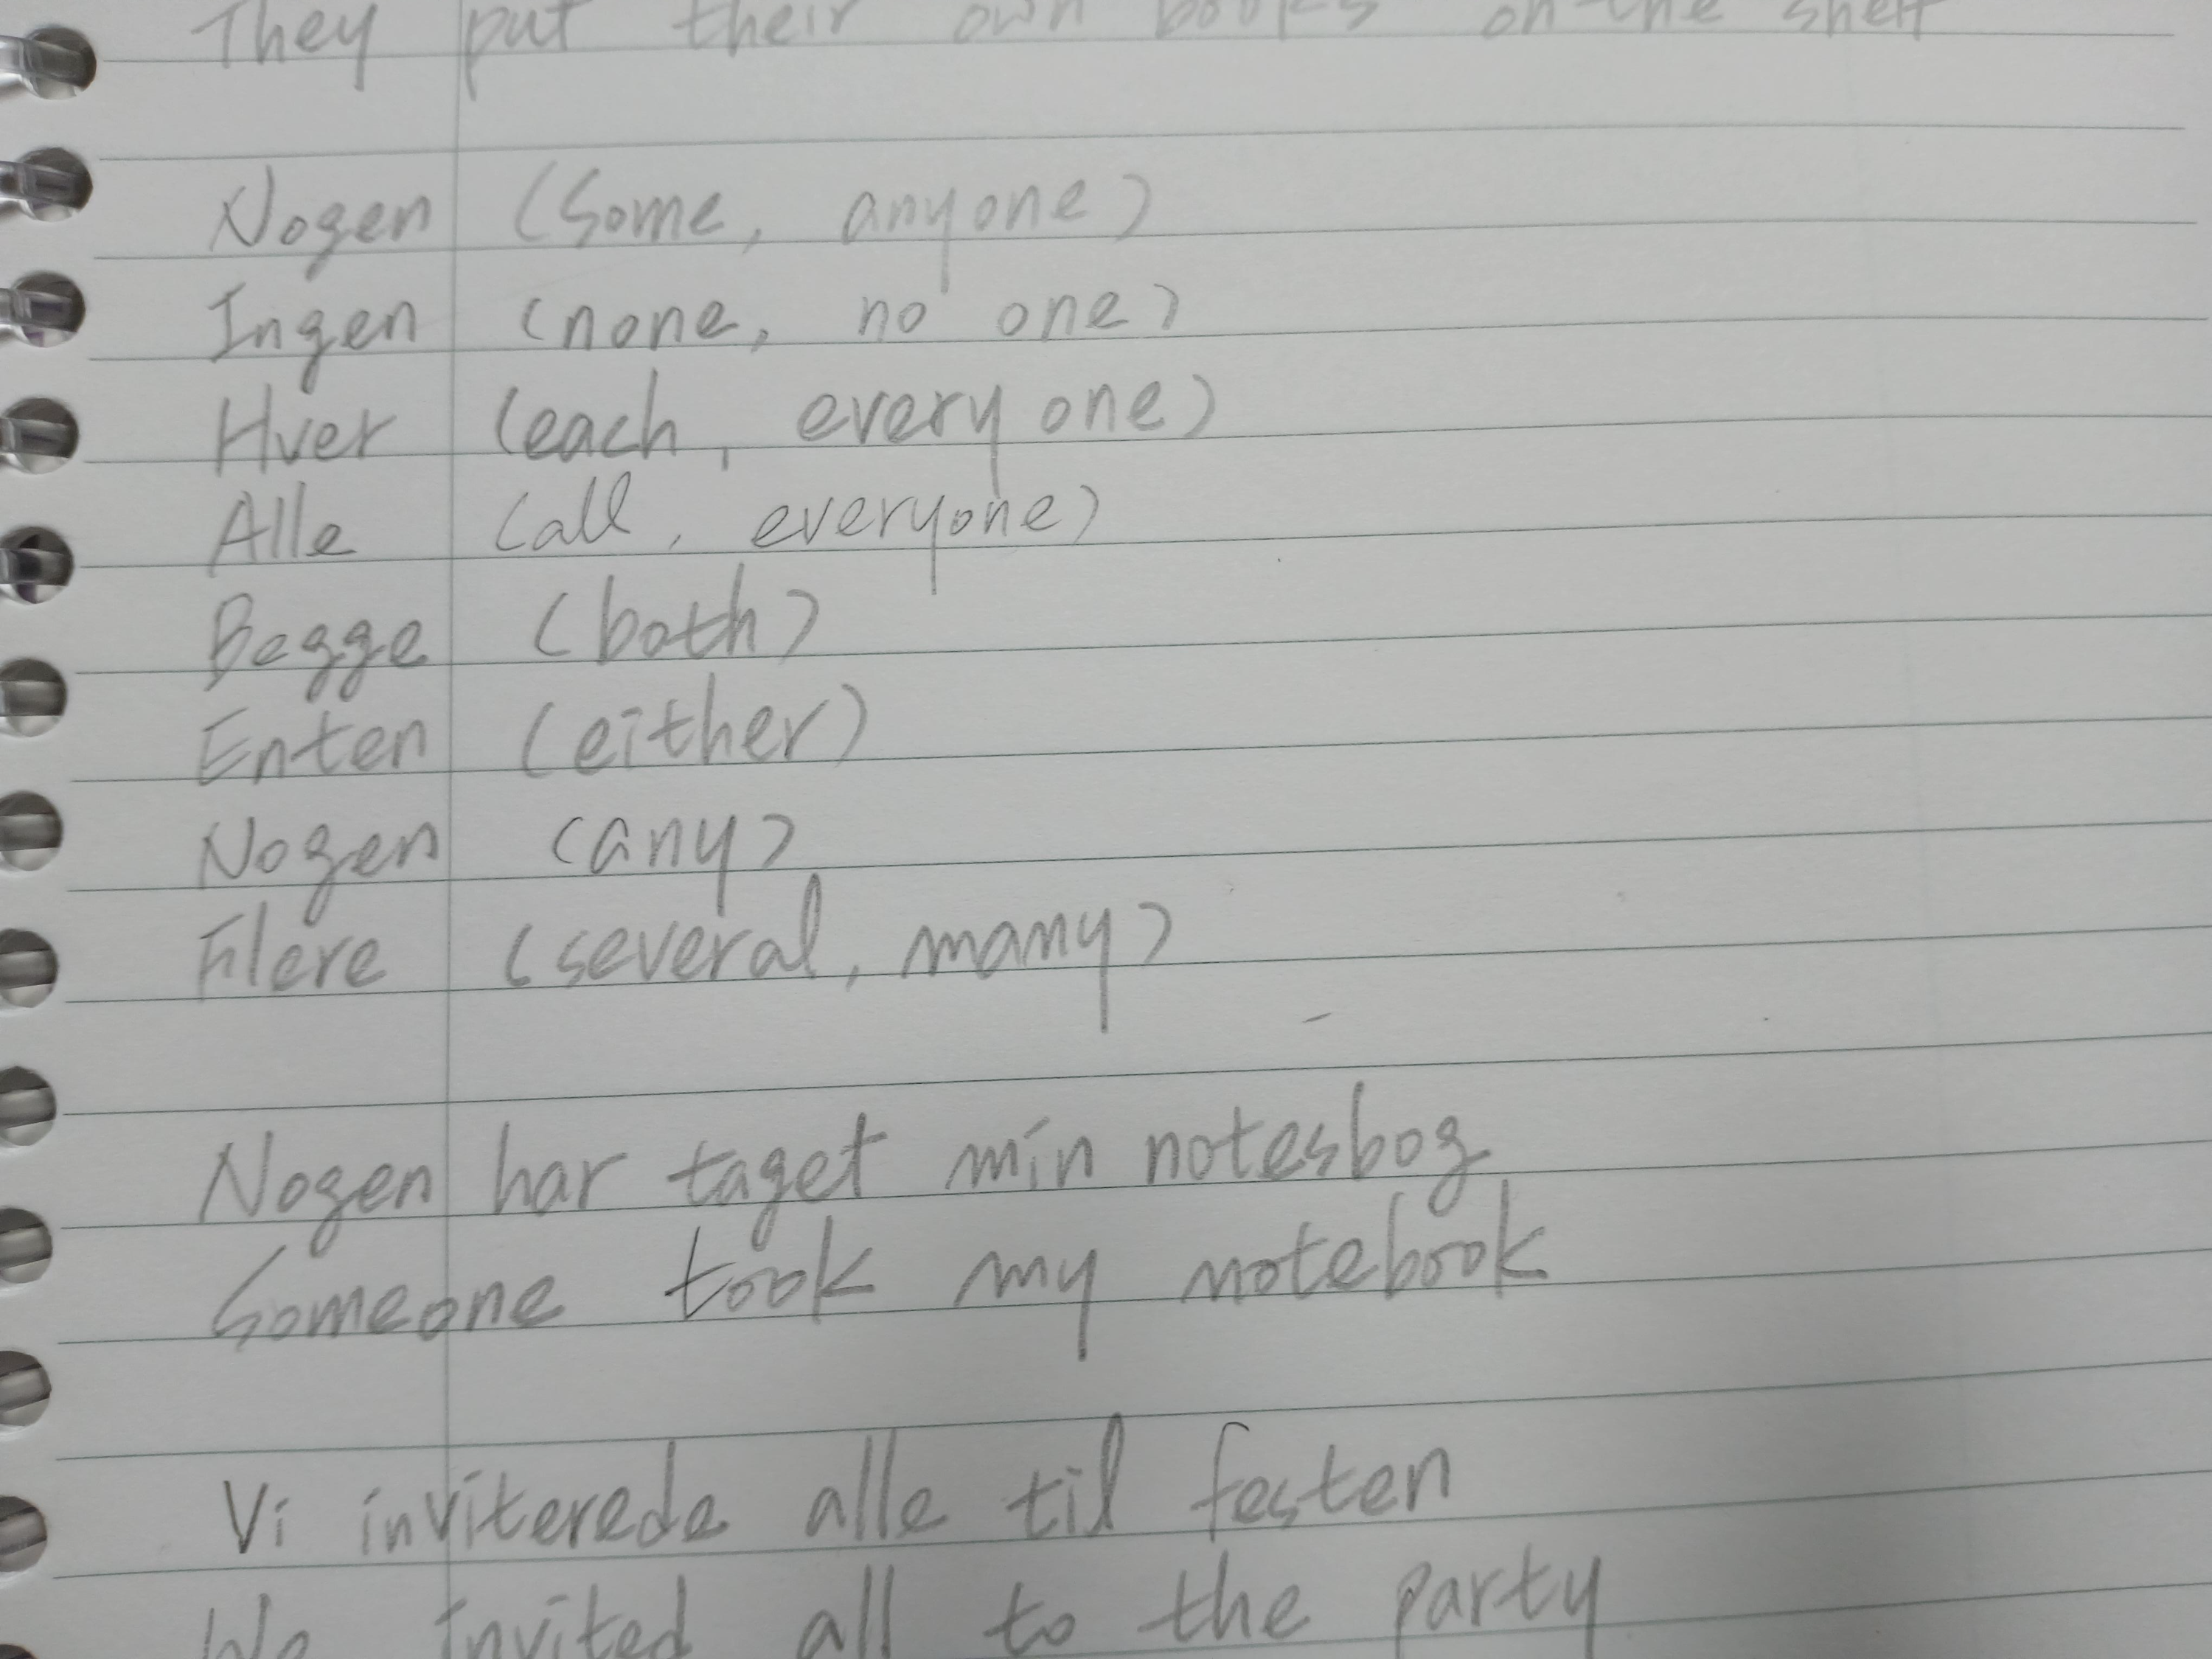 They put their own books on the shelf
Nogen (Some, anyone)
Ingen (none, no one)
Hver (each, every one)
Alle (all, everyone)
Begge (both)
Enten (either)
Nogen (any)
Flere (several, many)
Nogen har taget min notesbog
Someone took my notebook
Vi inviterede alle til festen
We invited all to the party